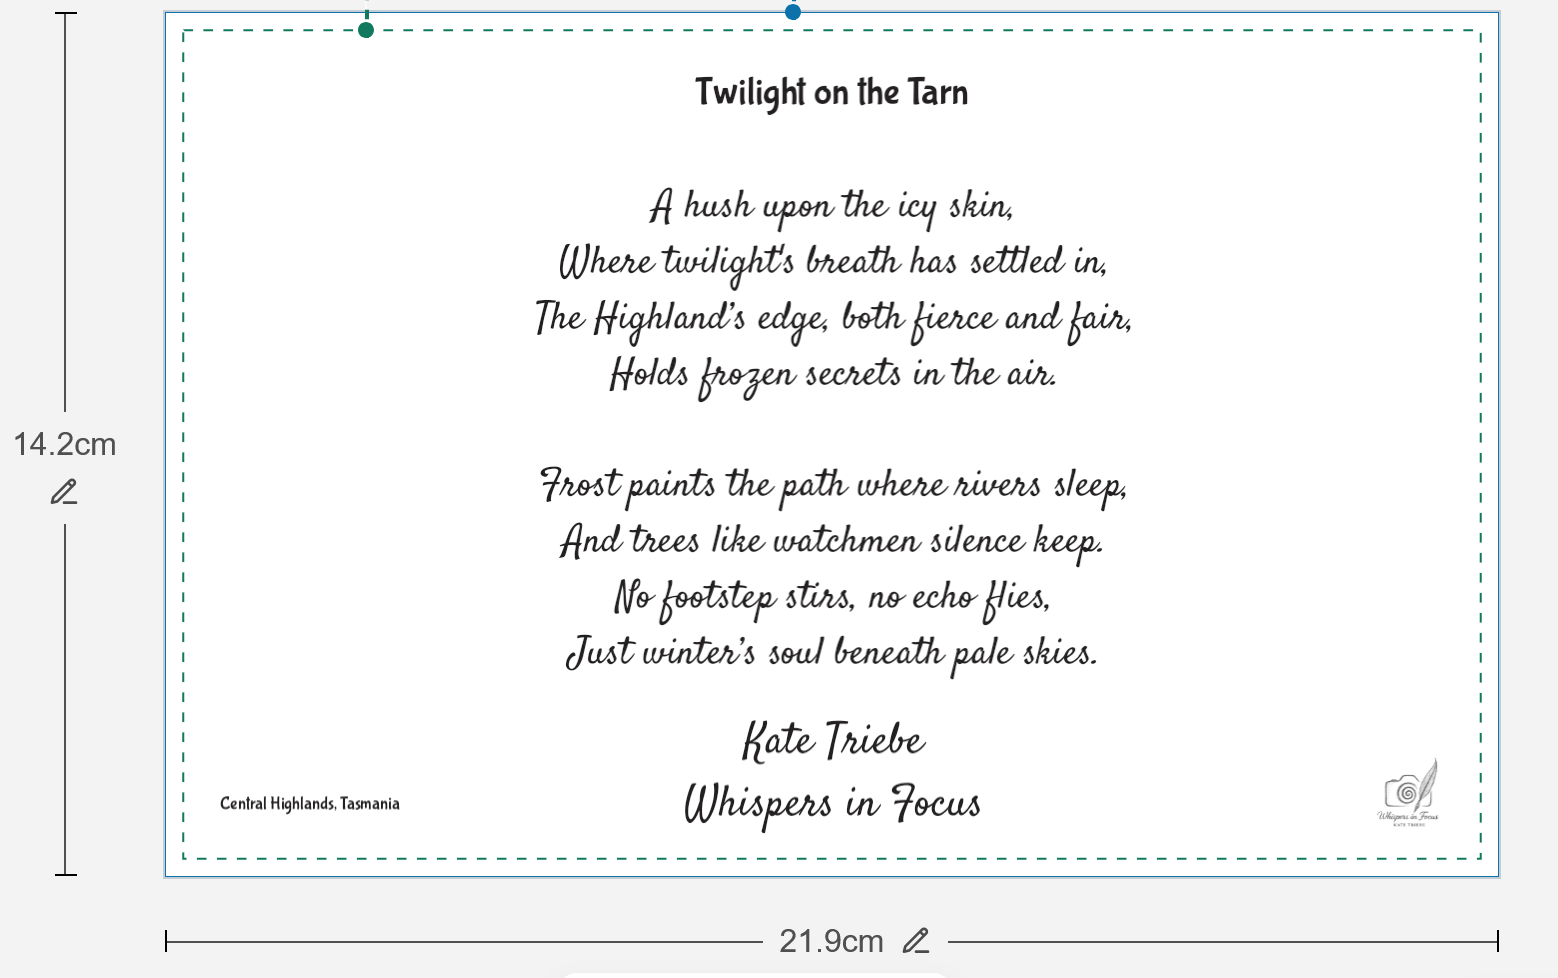 Twilight on the Tarn
A hush upon the icy skin,
Where twilight's breath has settled in,
The Highland’s edge, both fierce and fair,
Holds frozen secrets in the air.
Frost paints the path where rivers sleep,
And trees like watchmen silence keep.
No footstep stirs, no echo flies,
Just winter’s soul beneath pale skies.
Kate Triebe
Whispers in Focus
Central Highlands, Tasmania
Whispers in Focus
KATE TRIEBE
14.2cm
21.9cm